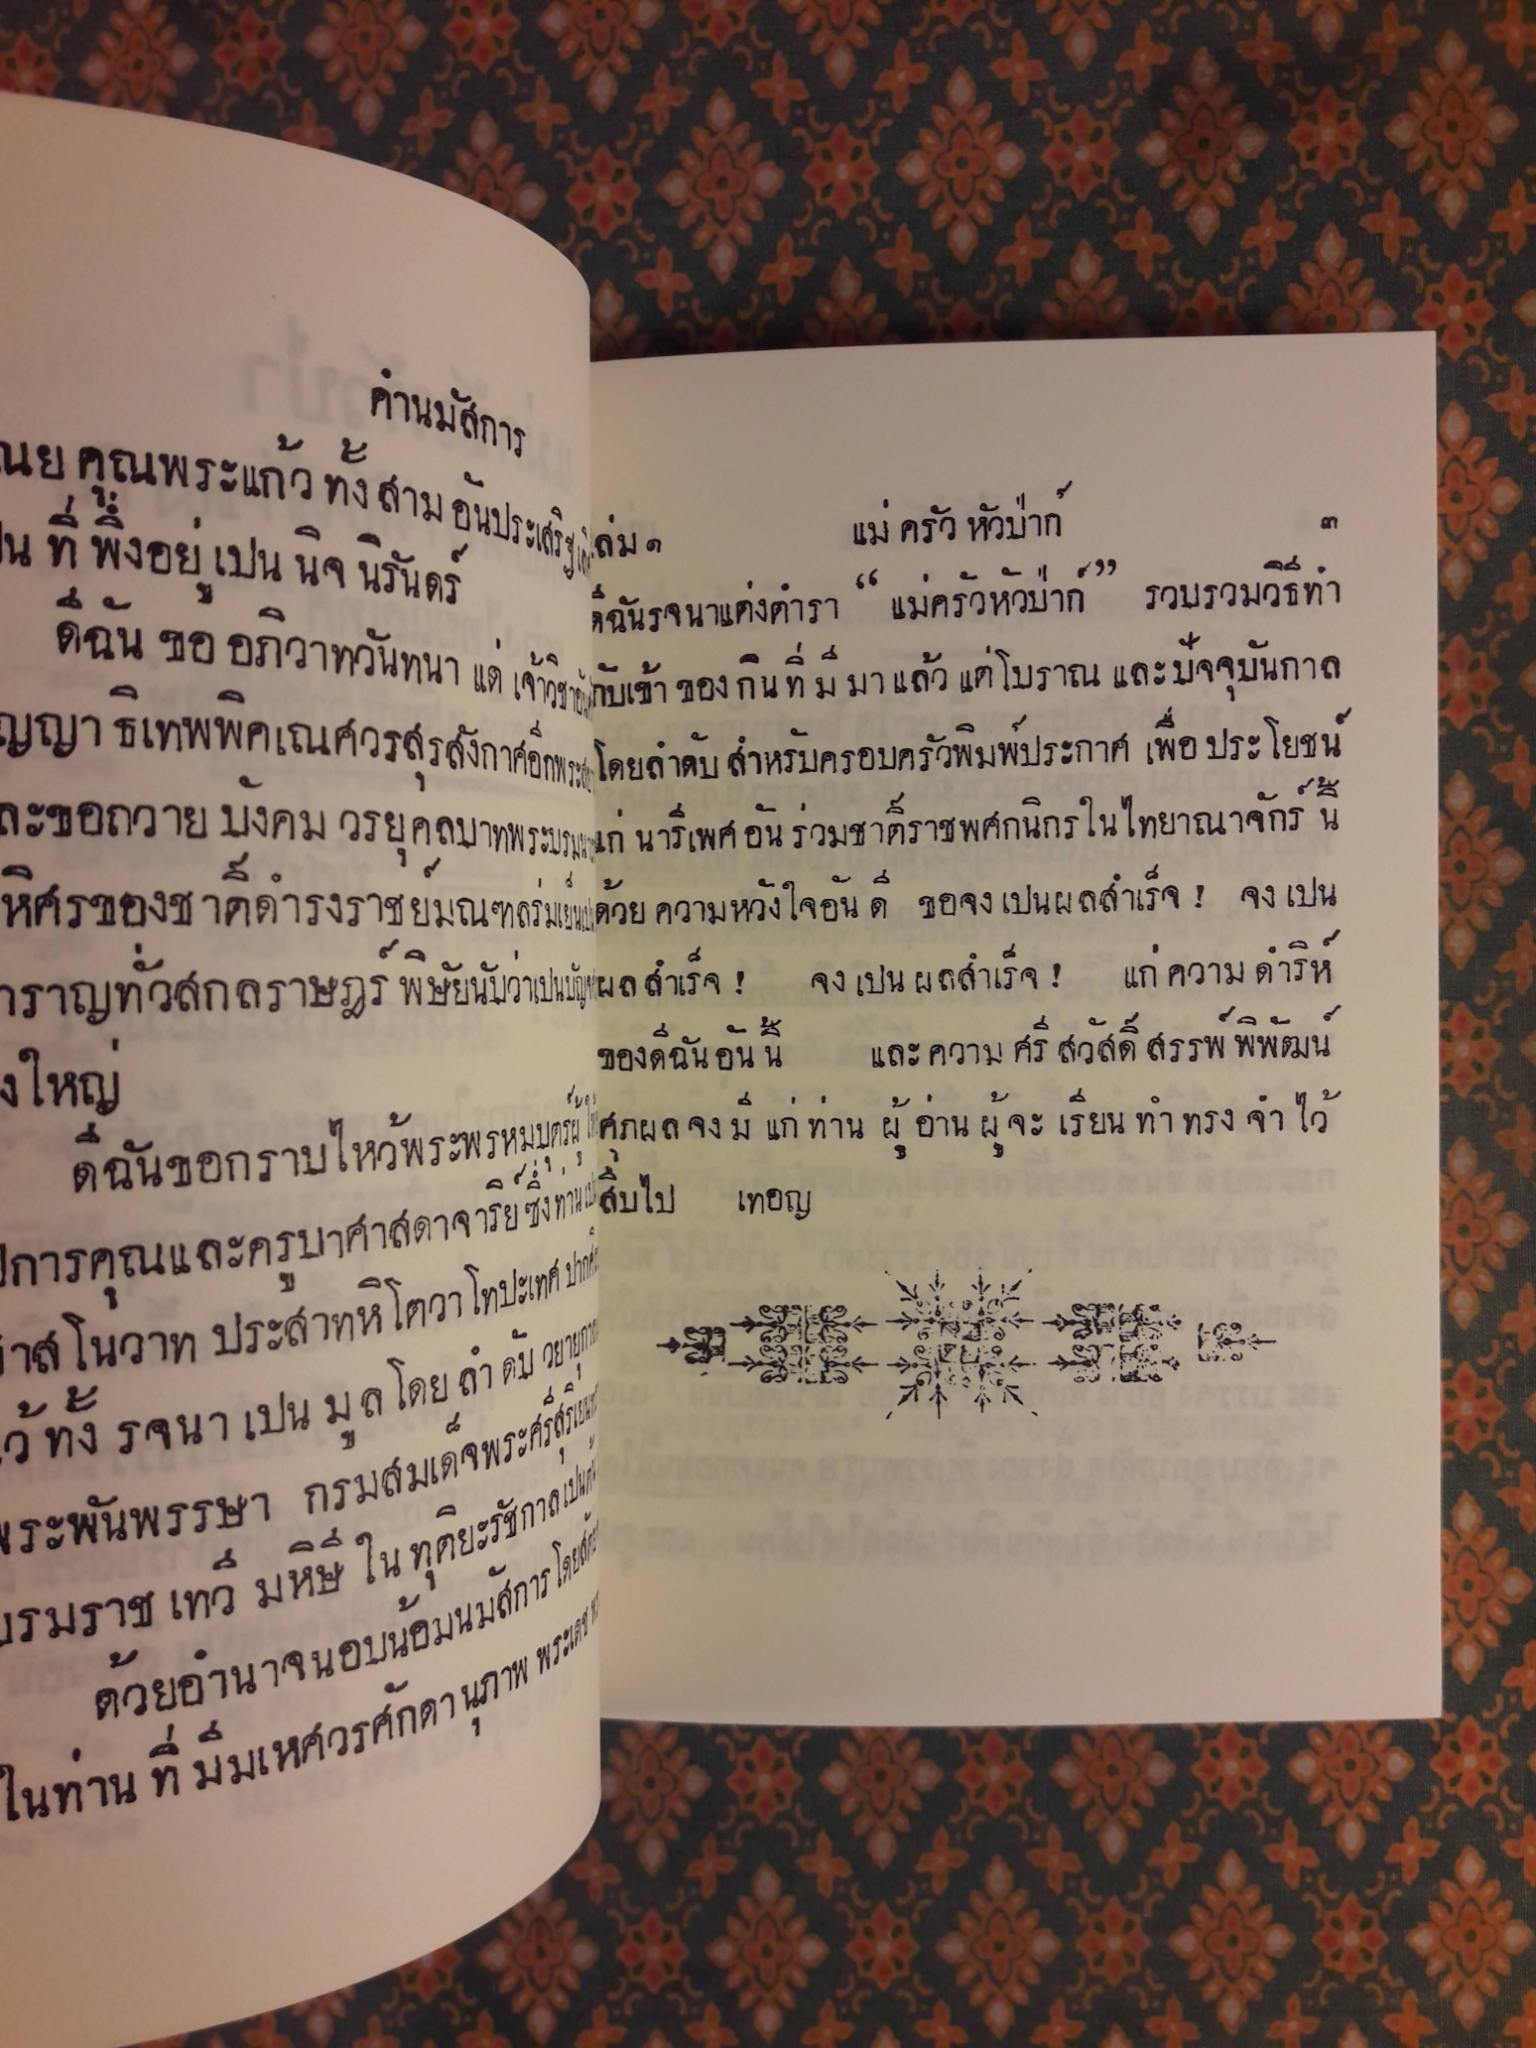 คำนมัสการ
คุณพระแก้ว ทั้ง สาม อันประเสริฐ
ที่ พึ่งอยู่ เปน นิจ นิรันดร์
ดิฉัน ขอ อภิวาทวันทนา แด่ เจ้าวิชา
ธิเทพพิคเณศวรสุรสังกาศอิกพระ
ละขอถวาย บังคม วรยุคลบาทพระบรม
หิศรของชาติ์ดำรงราชย์มณฑลร่มเย็น
ราญทั่วสกลราษฎร์ พิษัยนับว่าเปน
งใหญ่
ดิฉันขอกราบไหว้พระพรหมบุตร์ผู้
การคุณและครูบาศาสดาจารีย์ซึ่งท่าน
สโนวาท ประสาทหิโตวาโทปะเทศ
ไว้ ทั้ง รจนา เปน มูล โดย ลำ ดับ
พระพันพรรษา กรมสมเด็จพระศรีสุริเยน
บรมราช เทวี มหิษี ใน ทุติยะรัชกาลเปน
ด้วยอำนาจนอบน้อมนมัสการ
ในท่าน ที่ มีมเหศวรศักดา นุภาพ พระเดช
เล่ม ๑ แม่ ครัว หัวป่าก์ ๓
ดิฉันรจนาแต่งตำรา “ แม่ครัวหัวป่าก์ ” รวบรวมวิธีทำ
กับเข้า ของ กิน ที่ มี มา แล้ว แต่ โบราณ และ ปัจจุบันกาล
โดยลำดับ สำหรับครอบครัวพิมพ์ประกาศ เพื่อ ประโยชน์
แก่ นารีเพศ อัน ร่วมชาติ์ราชพศกนิกรในไทยาณาจักร์ นี้
ด้วย ความหวังใจอัน ดี ขอจง เปนผลสำเร็จ ! จง เปน
ผล สำเร็จ ! จง เปน ผลสำเร็จ ! แก่ ความ ดำริห์
ของดิฉัน อัน นี้ และ ความ ศรี สวัสดิ์ สรรพ์ พิพัฒน์
ศุภผล จง มี แก่ ท่าน ผู้ อ่าน ผู้ จะ เรียน ทำ ทรง จำ ไว้
สืบไป เทอญ